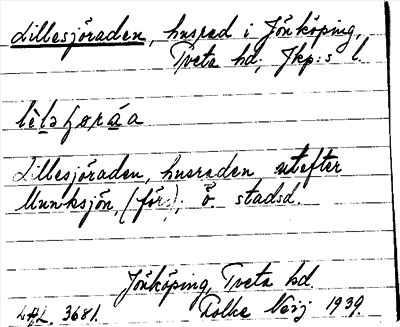 Lillesjöraden, husrad i Jönköping,
Tveta hd, Jkp:s l.
Lillesjöraden, husraden utefter
Munksjön, (förr), ö. stadsd.
Jönköping, Tveta hd.
3681. Folke 1939.